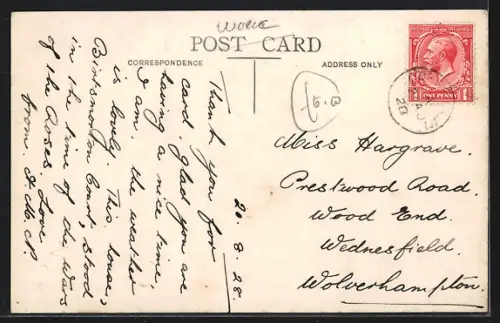 Worc
POST CARD
CORRESPONDENCE
ADDRESS ONLY
ONE PENNY
20.8.28.
Thank you for
card, glad you are
having a nice time,
I am. the weather
is lovely. This house,
Birtsmorton Court, stood
in the time of the Wars
of the Roses. Love
from.
Miss Hargrave.
Prestwood Road.
Wood End.
Wednesfield.
Wolverhampton.
28